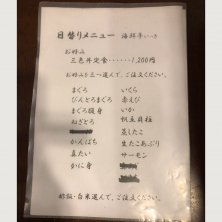 日替りメニュー 海鮮亭いっき
お好み
三色丼定食・・・・・・1,200円
お好みを三つ選んで、ご注文ください。
まぐろ いくら
びんとろまぐろ 赤えび
まぐろ腹身 いか
ねぎとろ 帆立貝柱
蒸したこ
かんぱち 生たこあぶり
真たい サーモン
かに身
酢飯・白米選んで、ご注文ください。